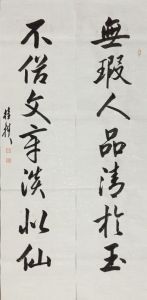 無瑕人品清於玉
不俗文章淡似仙